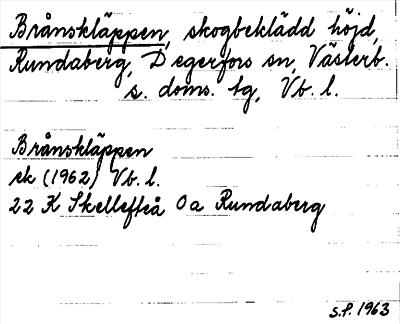 Brånskläppen, skogbeklädd höjd,
Rundaberg, Degerfors sn, Västerb.
s. doms. tg, Vb. l.
Brånskläppen
ek (1962) Vb. l.
22 K Skellefteå 0a Rundaberg
S.P. 1963